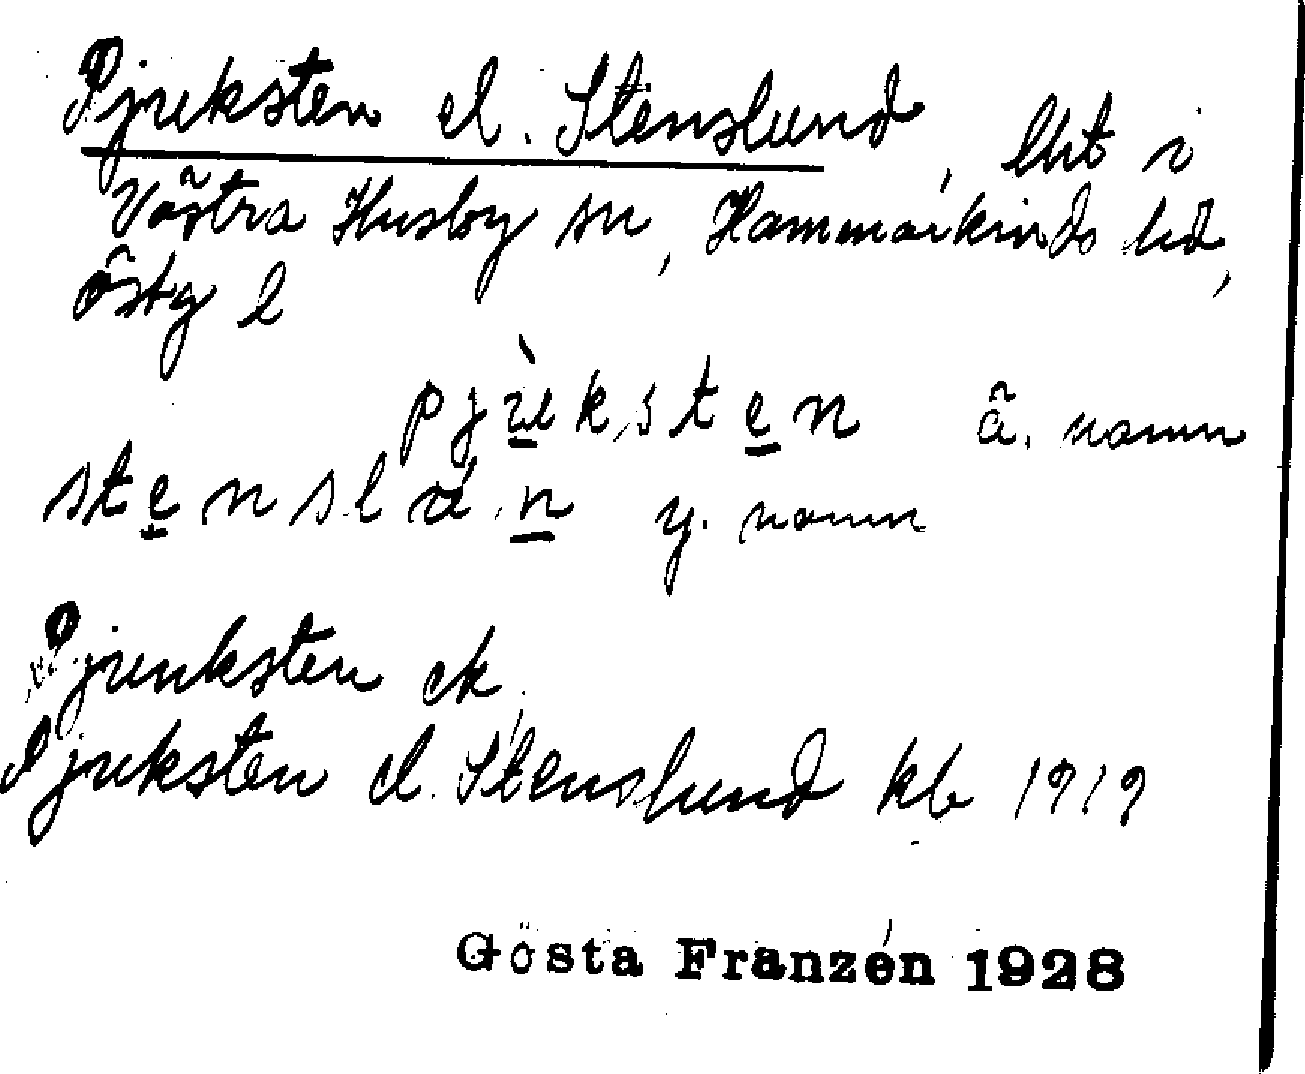 Pjuksten el. Stenslund, lht i
Västra Husby sn, Hammarkinds hd,
Östg l
pjùksten ä. namn
stenslún y. namn
Pjunksten ek
Pjuksten el. Stenslund kb 1919
Gösta Franzén 1928